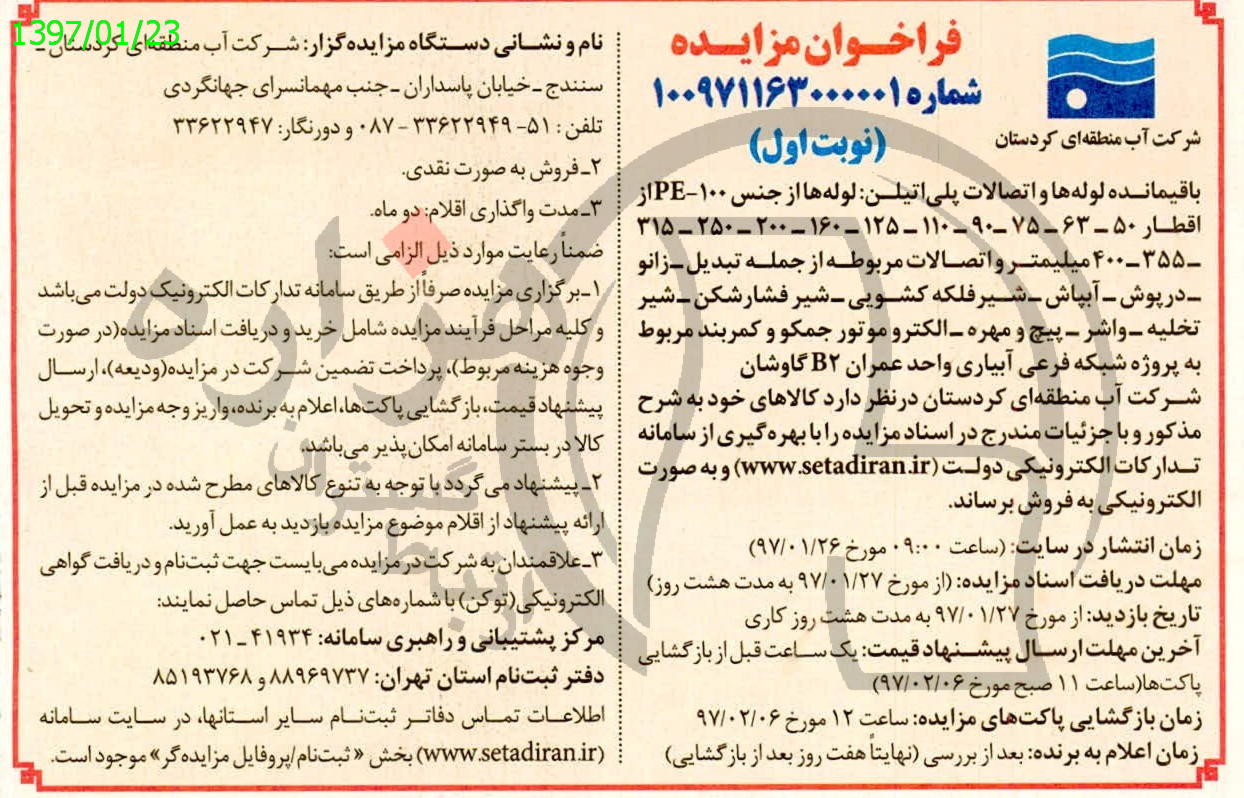 1397/01/23
شرکت آب منطقه‌ای کردستان
فراخـوان مزایـده
شماره ۱۰۰۹۷۱۱۶۳۰۰۰۰۰۱
(نوبت اول)
باقیمانـده لوله‌ها و اتصالات پلی‌اتیلـن: لوله‌ها از جنس PE-۱۰۰ از
اقطـار ۵۰ ـ ۶۳ ـ ۷۵ ـ ۹۰ ـ ۱۱۰ ـ ۱۲۵ ـ ۱۶۰ ـ ۲۰۰ ـ ۲۵۰ ـ ۳۱۵
ـ ۳۵۵ ـ ۴۰۰ میلیمتـر و اتصـالات مربوطـه از جملـه تبدیل ـ زانو
ـ درپوش ـ آبپاش ـ شـیرفلکه کشـویی ـ شیر فشارشکن ـ شیر
تخلیه ـ واشر ـ پیچ و مهره ـ الکترو موتور جمکو و کمربند مربوط
به پروژه شبکه فرعی آبیاری واحد عمران B۲ گاوشان
شـرکت آب منطقه‌ای کردستان درنظر دارد کالاهای خود به شرح
مذکور و با جزئیات مندرج در اسناد مزایده را با بهره‌گیری از سامانه
تـدارکات الکترونیکی دولـت (www.setadiran.ir) و به صورت
الکترونیکی به فروش برساند.
زمان انتشار در سایت: (ساعت ۰۹:۰۰ مورخ ۹۷/۰۱/۲۶)
مهلت دریافت اسناد مزایده: (از مورخ ۹۷/۰۱/۲۷ به مدت هشت روز)
تاریخ بازدید: از مورخ ۹۷/۰۱/۲۷ به مدت هشت روز کاری
آخرین مهلت ارسـال پیشـنهاد قیمت: یک سـاعت قبل از بازگشایی
پاکت‌ها(ساعت ۱۱ صبح مورخ ۹۷/۰۲/۰۶)
زمان بازگشایی پاکت‌های مزایده: ساعت ۱۲ مورخ ۹۷/۰۲/۰۶
زمان اعلام به برنده: بعد از بررسی (نهایتاً هفت روز بعد از بازگشایی)
نام و نشـانی دسـتگاه مزایده‌گزار: شـرکت آب منطقه‌ای کردستان ـ
سنندج ـ خیابان پاسداران ـ جنب مهمانسرای جهانگردی
تلفن : ۵۱- ۳۳۶۲۲۹۴۹ - ۰۸۷ و دورنگار: ۳۳۶۲۲۹۴۷
۲ـ فروش به صورت نقدی.
۳ـ مدت واگذاری اقلام: دو ماه.
ضمناً رعایت موارد ذیل الزامی است:
۱ـ برگزاری مزایده صرفاً از طریق سامانه تدارکات الکترونیک دولت می‌باشد
و کلیه مراحل فرآیند مزایده شامل خرید و دریافت اسناد مزایده(در صورت
وجوه هزینه مربوط)، پرداخت تضمین شـرکت در مزایده(ودیعه)، ارسـال
پیشنهاد قیمت، بازگشایی پاکت‌ها، اعلام به برنده، واریز وجه مزایده و تحویل
کالا در بستر سامانه امکان‌پذیر می‌باشد.
۲ـ پیشنهاد می‌گردد با توجه به تنوع کالاهای مطرح شده در مزایده قبل از
ارائه پیشنهاد از اقلام موضوع مزایده بازدید به عمل آورید.
۳ـ علاقمندان به شرکت در مزایده می‌بایست جهت ثبت‌نام و دریافت گواهی
الکترونیکی(توکن) با شماره‌های ذیل تماس حاصل نمایند:
مرکز پشتیبانی و راهبری سامانه: ۴۱۹۳۴ ـ ۰۲۱
دفتر ثبت‌نام استان تهران: ۸۸۹۶۹۷۳۷ و ۸۵۱۹۳۷۶۸
اطلاعـات تمـاس دفاتـر ثبت‌نـام سـایر اسـتانها، در سـایت سـامانه
(www.setadiran.ir) بخش « ثبت‌نام/پروفایل مزایده‌گر» موجود است.
هزاره
ارتباط
گستران